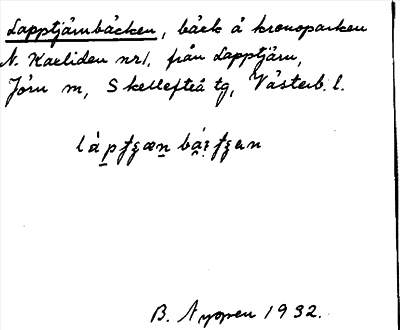 Lapptjärnbäcken, bäck å kronoparken
N. Kaeliden nr 1, från Lapptjärn,
Jörn sn, Skellefteå tg, Västerb. l.
B. Nyopen 1932.